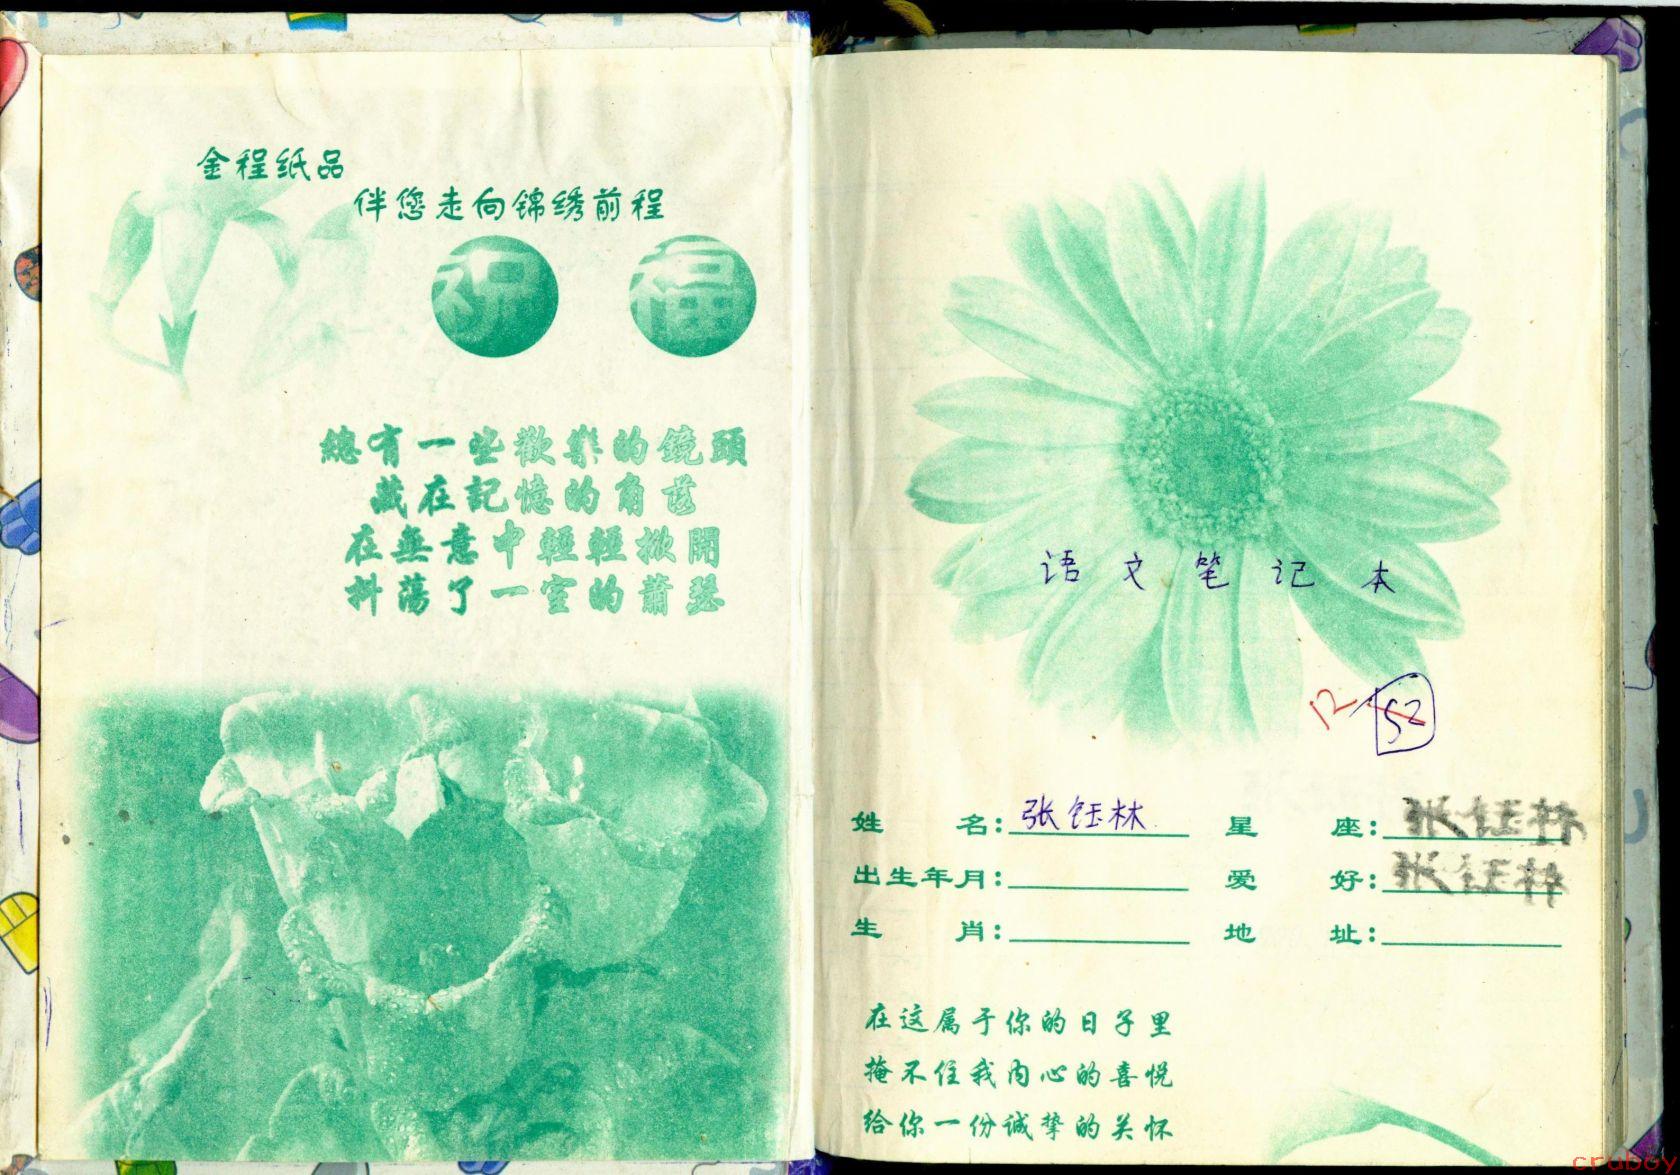 金程纸品
伴您走向锦绣前程
祝 福
總有一些歡樂的鏡頭
藏在記憶的角落
在無意中輕輕掀開
抖蕩了一室的蕭瑟
语文笔记本
12 52
姓 名: 张钰林 星 座: 张钰林
出生年月: 爱 好: 张钰林
生 肖: 地 址:
在这属于你的日子里
掩不住我内心的喜悦
给你一份诚挚的关怀
cruboy